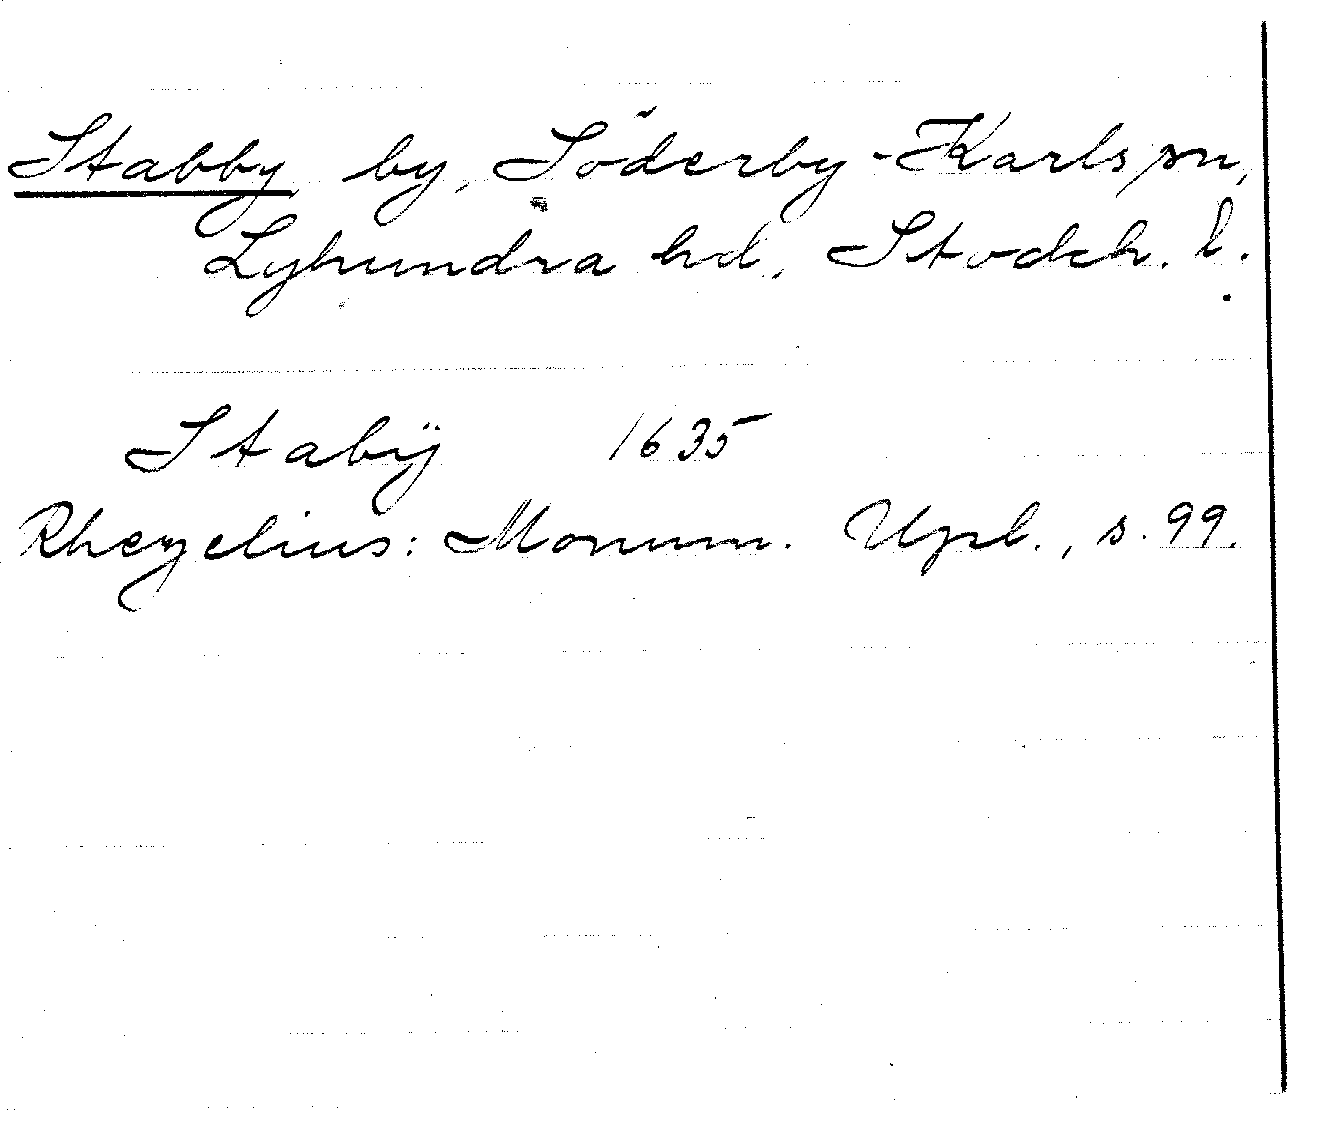 Stabby by, Söderby-Karls sn,
Lyhundra hd, Stockh. l.
Stabÿ 1635
Rhezelius: Monum. Upl., s. 99.